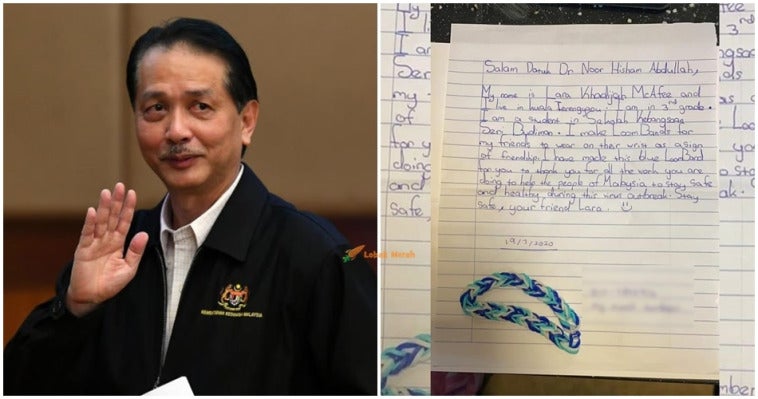 KEMENTERIAN KESIHATAN MALAYSIA
Lobak Merah
Salam Datuk Dr Noor Hisham Abdullah,
My name is Lara Khadijah McAfee and
I live in Kuala Terengganu. I am in 3rd grade.
I am a student in Sekolah Kebangsaan
Seri Budiman. I make LoomBands for
my friends to wear on their wrist as a sign
of friendship. I have made this blue LoomBand
for you to thank you for all the work you are
doing to help the people of Malaysia to stay safe
and healthy during this virus outbreak. Stay
safe, your friend Lara.
19/7/2020